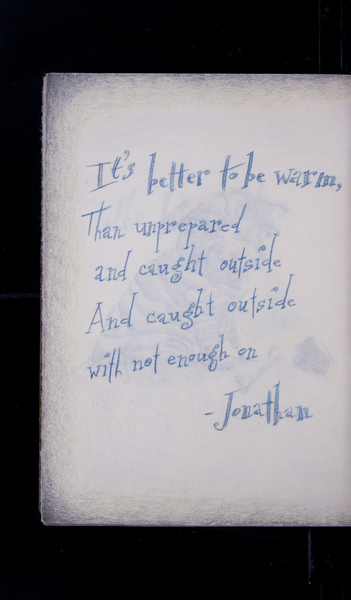 It's better to be warm,
Than unprepared
and caught outside
And caught outside
with not enough on
- Jonathan